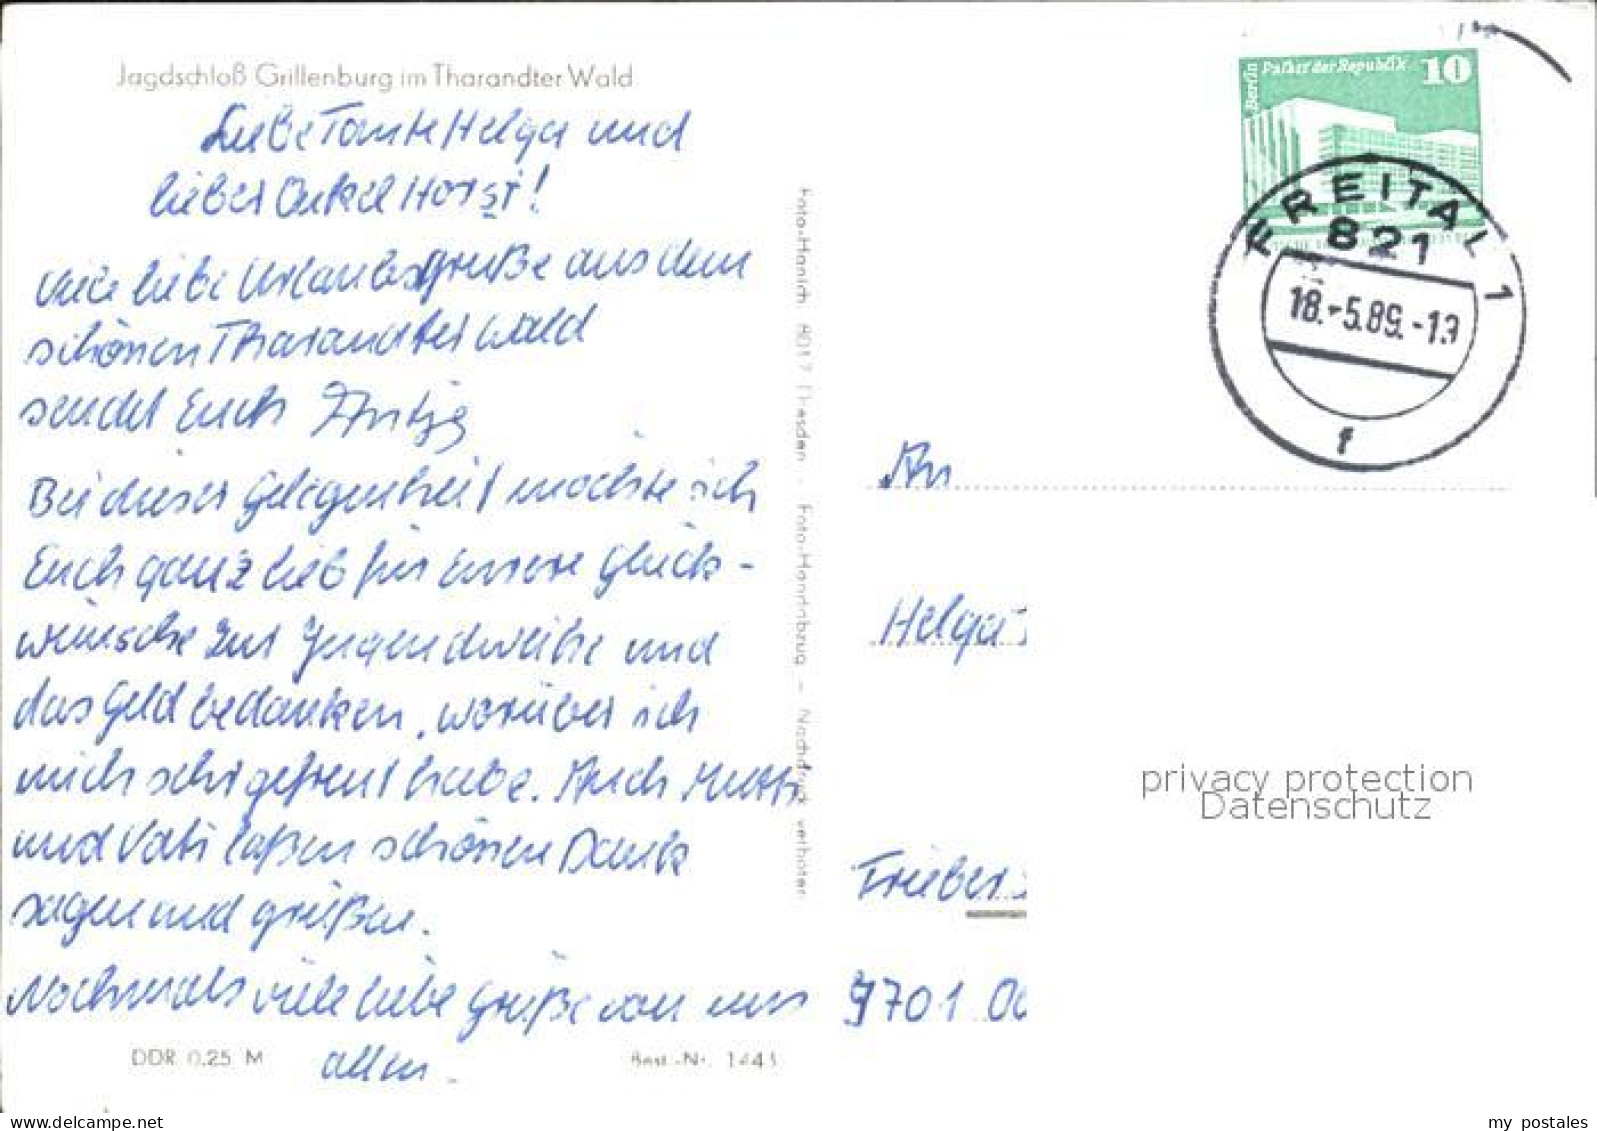 Jagdschloß Grillenburg im Tharandter Wald
Liebe Tante Helga und
lieber Onkel Horst!
Viele liebe Urlaubsgrüße aus dem
schönen Tharandter Wald
sendet Euch
Bei dieser Gelegenheit möchte ich
Euch ganz lieb für Eurere Glück-
wünsche zur Jugendweihe und
das Geld bedanken, worüber ich
mich sehr gefreut habe. Auch Mutti
und Vati laßen schönen Dank
sagen und grüßen.
Nochmals viele liebe Grüße von uns
allen.
DDR 0.25 M
Best.-Nr. 1443
Foto-Hanich 8017 Dresden - Foto-Handabzug - Nachdruck verboten
Berlin Palast der Republik 10
FREITAL 1
821
18.-5.89.-19
f
An
Helga
Trieber
9701
privacy protection
Datenschutz
www.delcampe.net
my_postales